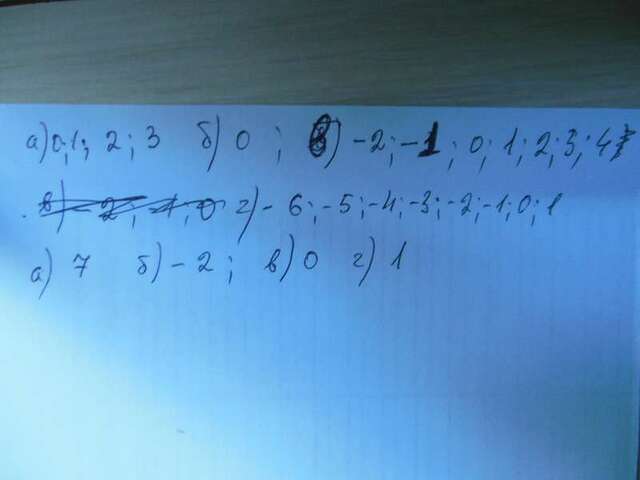 а) 0; 1; 2; 3 б) 0 ; в) -2; -1; 0; 1; 2; 3; 4
в) - 2; -1, 0 г) - 6; -5; -4; -3; -2; -1; 0; 1
а) 7 б) - 2; в) 0 г) 1